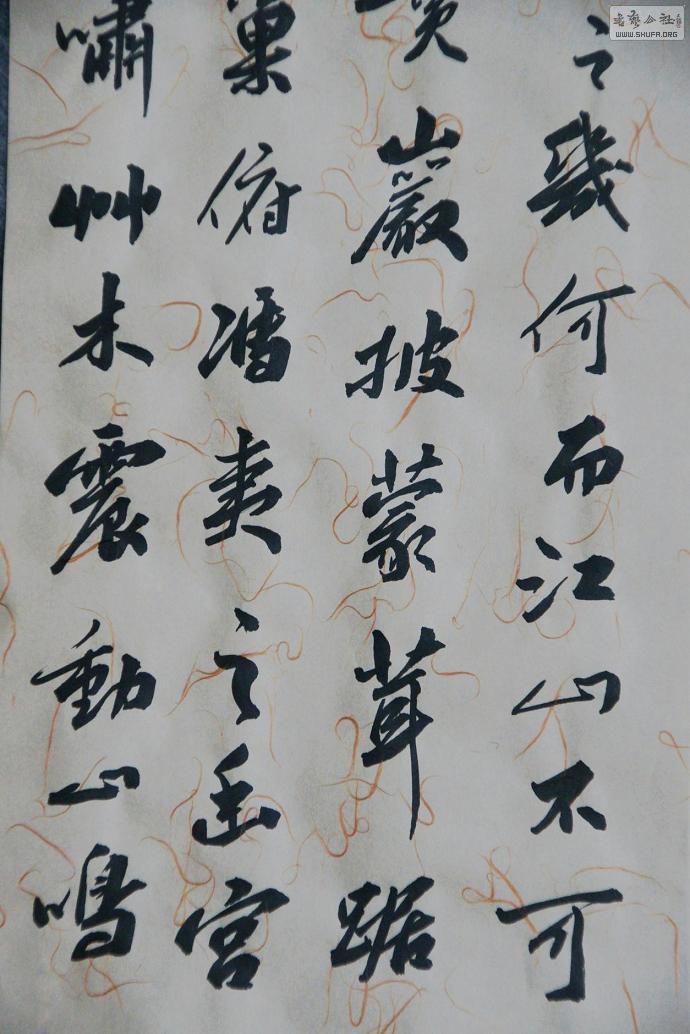 之幾何而江山不可
巖披蒙茸踞
巢俯馮夷之幽宮
嘯艸木震動山鳴
書藝公社
WWW.SHUFA.ORG